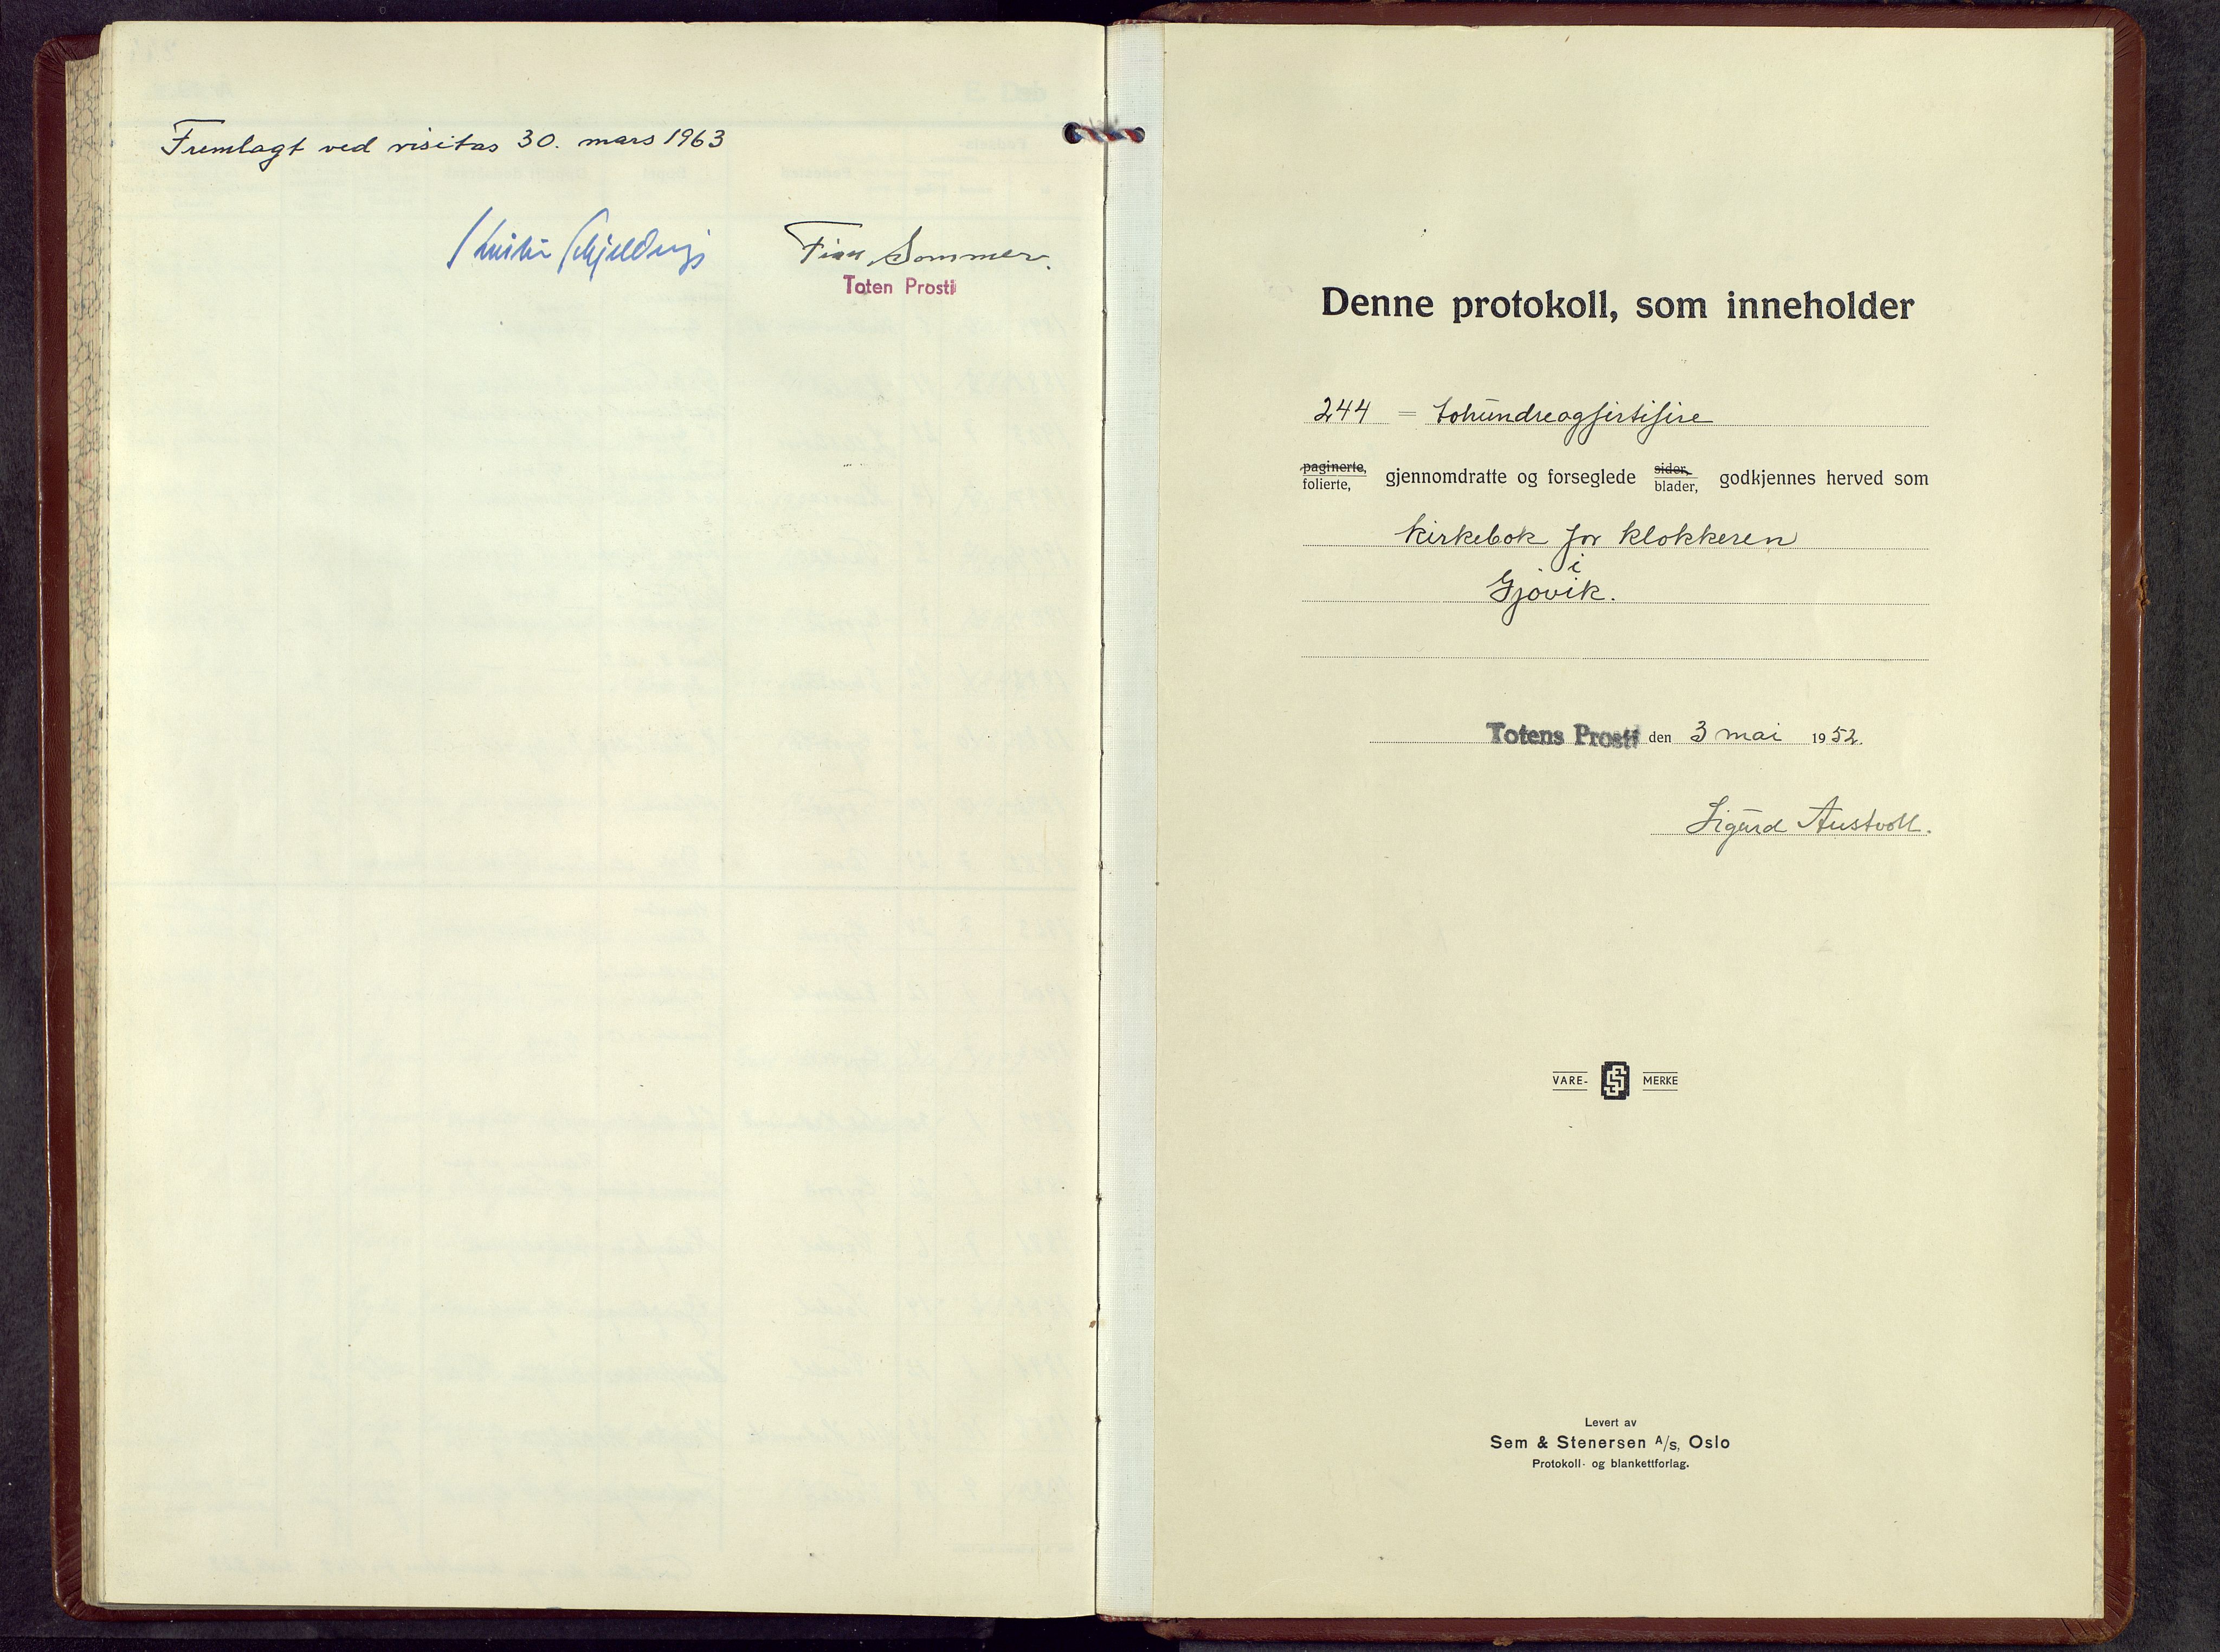 Fremlagt ved visitas 30. mars 1963
Finn Sommer.
Toten Prosti
Denne protokoll, som inneholder
244 = tohundreogfirtifire
paginerte, folierte, gjennomdratte og forseglede sider, blader, godkjennes herved som
kirkebok for klokkeren
i
Gjøvik.
Totens Prosti den 3 mai 1952.
Sigurd Austvoll.
VARE- MERKE
Levert av
Sem & Stenersen A/s, Oslo
Protokoll- og blankettforlag.